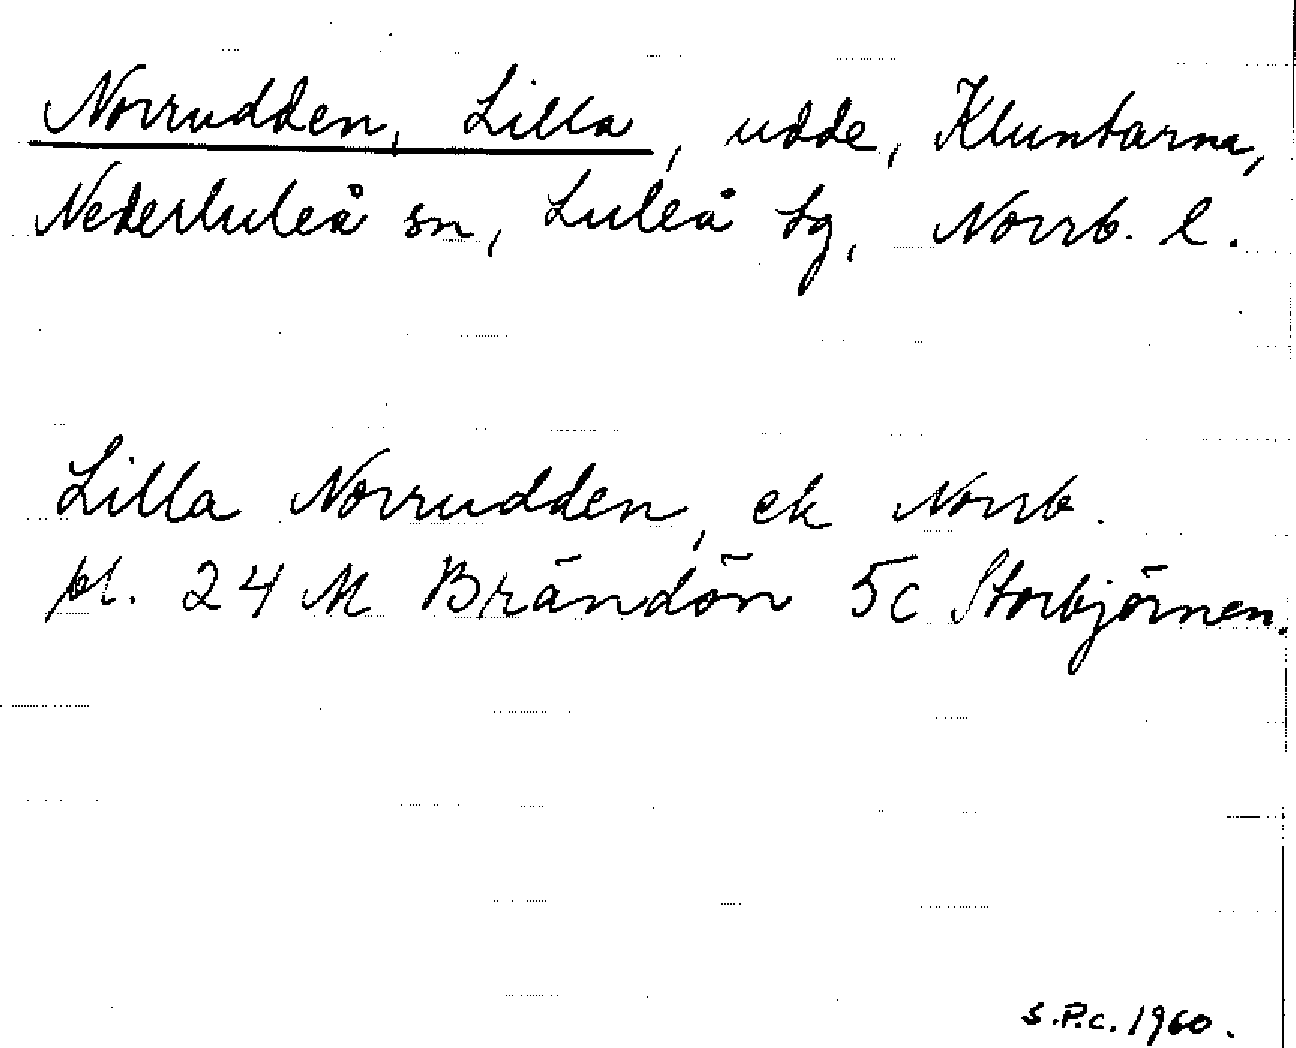 Norrudden, Lilla, udde, Kluntarna,
Nederluleå sn, Luleå tg, Norrb. l.
Lilla Norrudden, ek Norrb.
bl. 24 M Brändön 5c Storbjörnen.
S.P.c. 1960.